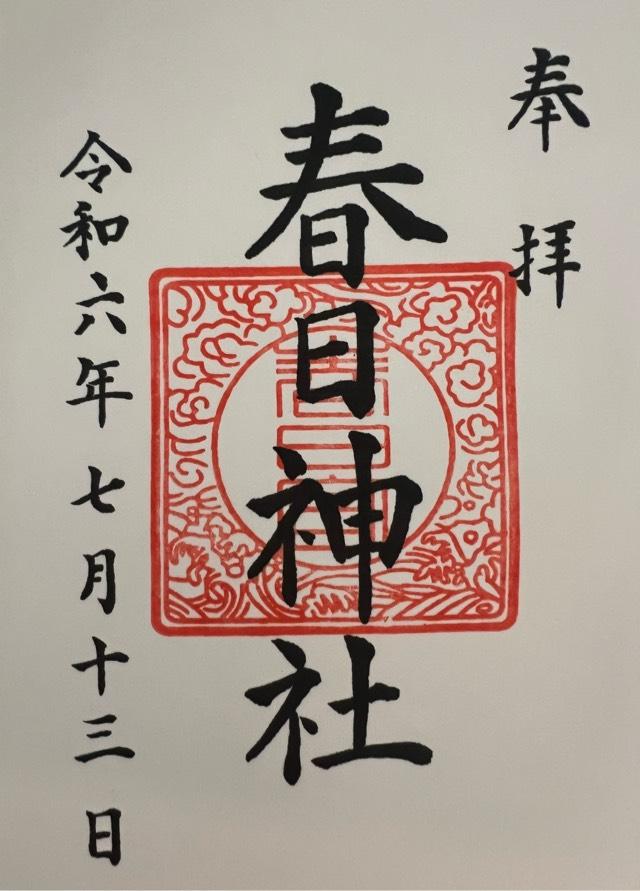 奉拝
春日神社
令和六年七月十三日